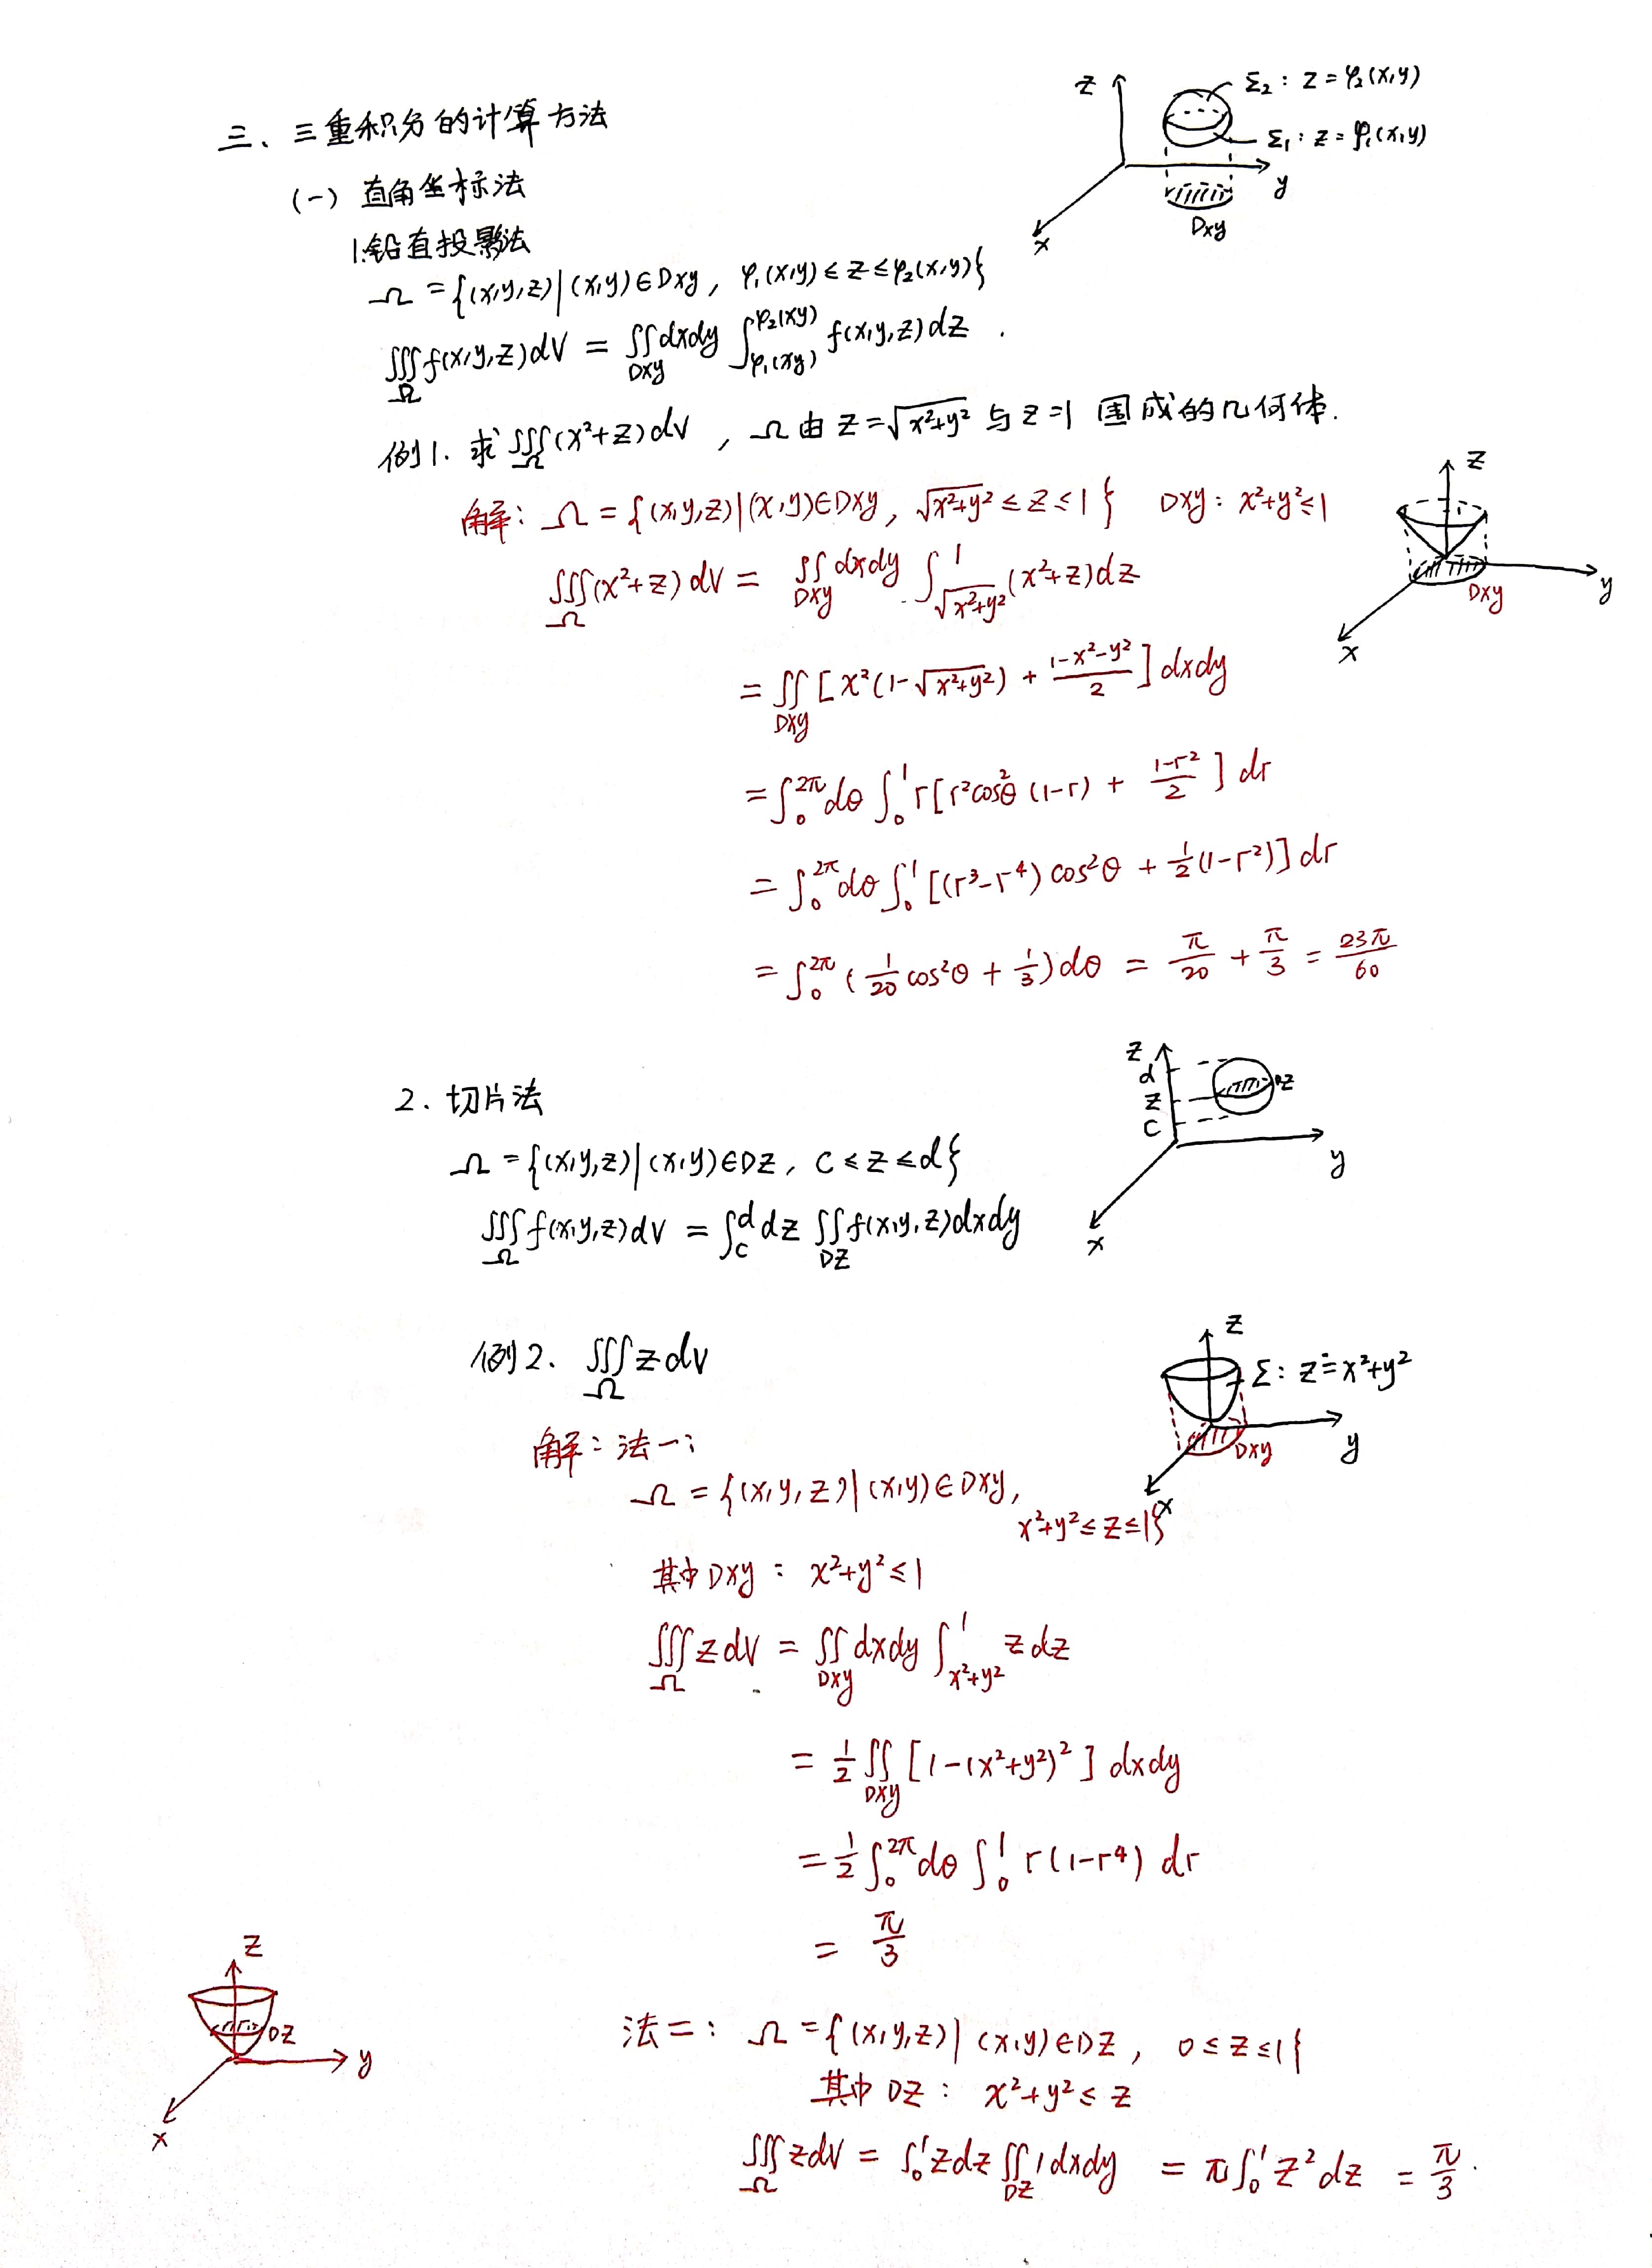 三、三重积分的计算方法
z
Σ₂: z=φ₂(x,y)
Σ₁: z=φ₁(x,y)
y
x
Dxy
(一) 直角坐标法
1.铅直投影法
Ω={(x,y,z)|(x,y)∈Dxy, φ₁(x,y)≤z≤φ₂(x,y)}
∭_Ω f(x,y,z)dV = ∬_Dxy dxdy ∫_{φ₁(xy)}^{φ₂(xy)} f(x,y,z)dz.
例1. 求∭_Ω(x²+z)dV, Ω由z=√(x²+y²)与z=1围成的几何体.
解: Ω={(x,y,z)|(x,y)∈Dxy, √(x²+y²)≤z≤1} Dxy: x²+y²≤1
z
y
x
Dxy
∭_Ω(x²+z)dV = ∬_Dxy dxdy ∫_{√(x²+y²)}^1 (x²+z)dz
=∬_Dxy [x²(1-√(x²+y²)) + (1-x²-y²)/2]dxdy
=∫₀^{2π}dθ∫₀¹ r[r²cos²θ(1-r) + (1-r²)/2]dr
=∫₀^{2π}dθ∫₀¹ [(r³-r⁴)cos²θ + ½(1-r²)]dr
=∫₀^{2π}(1/20 cos²θ + 1/3)dθ = π/20 + π/3 = 23π/60
2. 切片法
z
d
z
c
Dz
y
x
Ω={(x,y,z)|(x,y)∈Dz, c≤z≤d}
∭_Ω f(x,y,z)dV = ∫_c^d dz ∬_Dz f(x,y,z)dxdy
例2. ∭_Ω zdV
z
Σ: z=x²+y²
y
x
Dxy
解: 法一:
Ω={(x,y,z)|(x,y)∈Dxy,
x²+y²≤z≤1}
其中Dxy: x²+y²≤1
∭_Ω zdV = ∬_Dxy dxdy ∫_{x²+y²}^1 zdz
=½∬_Dxy [1-(x²+y²)²]dxdy
=½∫₀^{2π}dθ∫₀¹ r(1-r⁴)dr
=π/3
z
Dz
y
x
法二: Ω={(x,y,z)|(x,y)∈Dz, 0≤z≤1}
其中Dz: x²+y²≤z
∭_Ω zdV = ∫₀¹zdz∬_Dz 1dxdy = π∫₀¹z²dz = π/3.